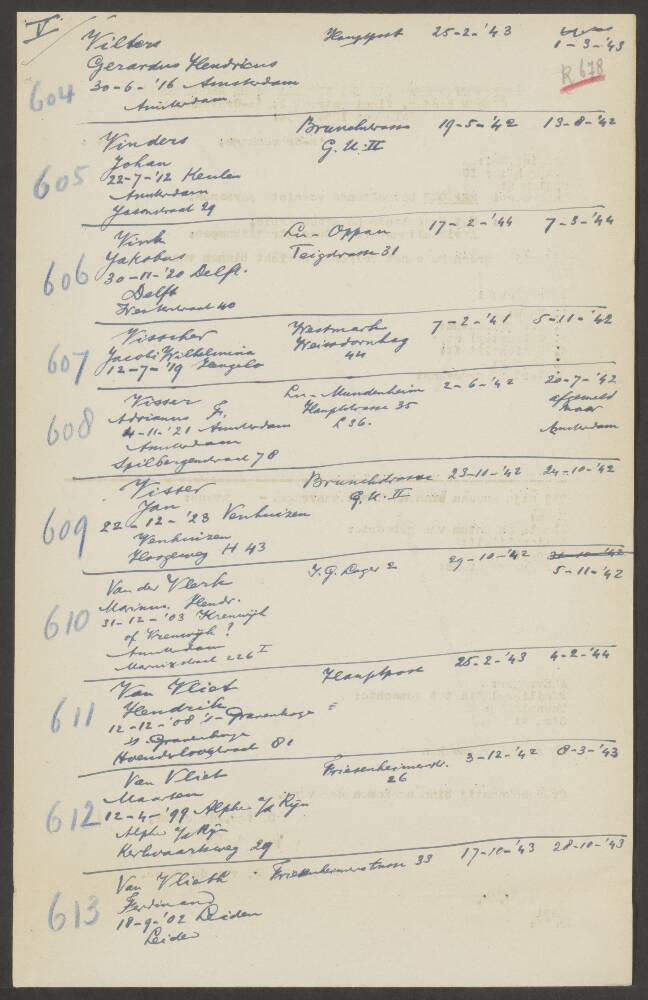 V
Vilters Hauptpost 25-2-'43
1-3-'43
Gerardus Hendricus
R 678
604 30-6-'16 Amsterdam
Amsterdam
Vinders Brunckstrasse 19-5-'42 13-8-'42
Johan G.U. II
605 22-7-'12 Keulen
Amsterdam
Jasonstraat 29
Vink Lu-Oppau 17-2-'44 7-3-'44
Jakobus Teigdrasse 31
606 30-11-'20 Delft.
Delft
Westerstraat 40
Visscher Westmark 7-2-'41 5-11-'42
Jacobi Wilhelmina Weissdornhag
607 12-7-'19 Hengelo 44
Visser Lu-Mundenheim 2-6-'42 20-7-'42
Adrianus Fr. Hauptstrasse 35 afgemeld
608 4-11-'21 Amsterdam L 36. naar
Amsterdam Amsterdam
Spilbergenstraat 78
Visser Brunckstrasse 23-11-'42 24-10-'42
Jan G.U. II
609 22-12-'23 Venhuizen
Venhuizen
Hoogeweg H 43
Van der Vlerk I.G. Lager 2 29-10-'42 31-10-'42
Marinus Hendr. 5-11-'42
610 31-12-'03 Krenwijk
of Vrenwijk?
Amsterdam
Marnixstraat 226 I
Van Vliet Hauptpost 25-2-'43 4-2-'44
Hendrik
611 12-12-'08 's-Gravenhage
's-Gravenhage
Hoenderloostraat 81
Van Vliet Friesenheimerstr. 3-12-'42 8-3-'43
Maarten 26
612 12-4-'99 Alphen a/d Rijn
Alphen a/d Rijn
Kerkvaartsweg 29
Van Vlieth Friesenheimerstrasse 33 17-10-'43 28-10-'43
Ferdinand
613 18-9-'02 Leiden
Leiden